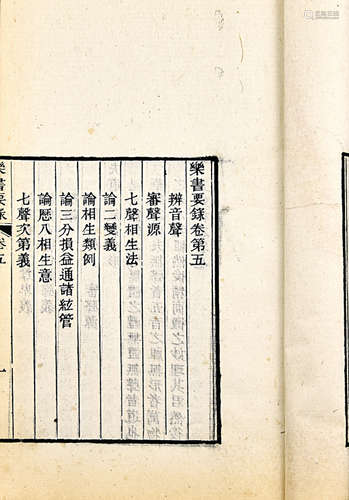 樂書要錄卷第五
辨音聲
審聲源
七聲相生法
論二變義
論相生類例
論三分損益通諸絃管
論歷八相生意
七聲次第義
樂書要錄 卷五 一